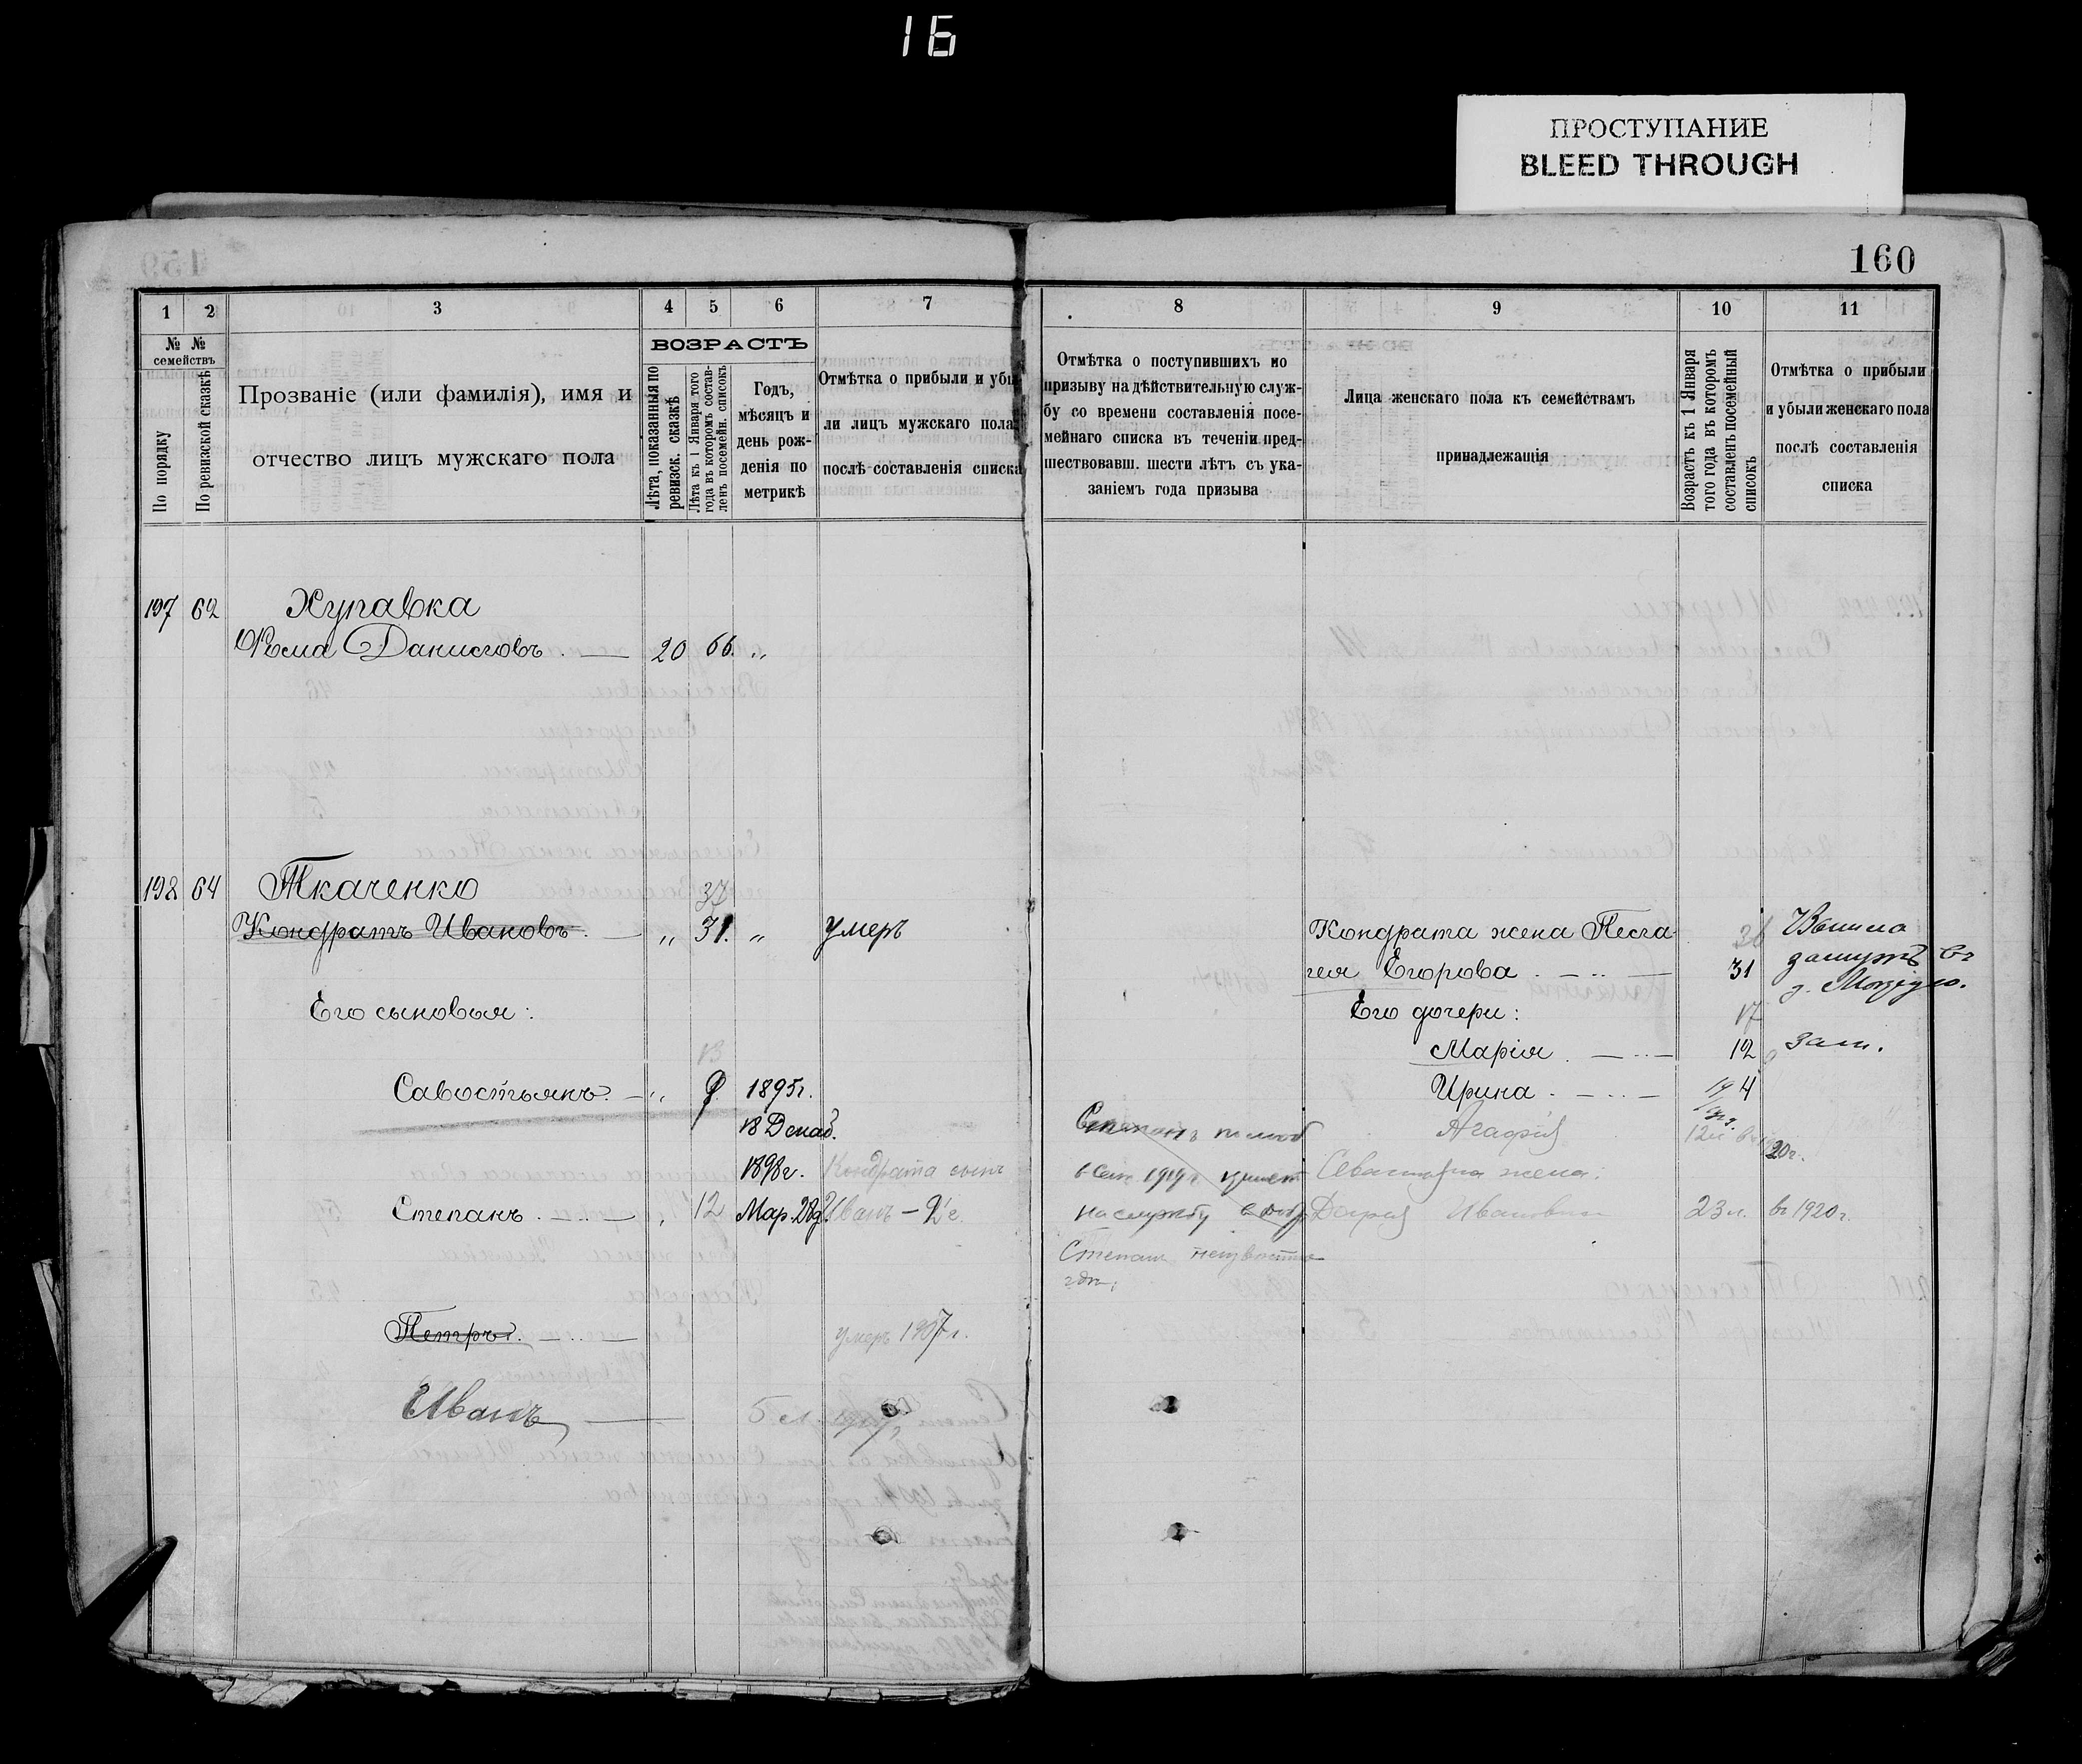 16
ПРОСТУПАНИЕ
BLEED THROUGH
160
1 2 3 4 5 6 7 8 9 10 11
№ № семействъ
По порядку
По ревизской сказкѣ
Прозваніе (или фамилія), имя и
отчество лицъ мужскаго пола
ВОЗРАСТЪ
Лѣта, показанныя по
ревизск. сказкѣ
Лѣта къ 1 Января того
года въ которомъ состав-
ленъ посемейн. списокъ
Годъ,
мѣсяцъ и
день рож-
денія по
метрикѣ
Отмѣтка о прибыли и убы
ли лицъ мужскаго пола
послѣ составленія списка
Отмѣтка о поступившихъ по
призыву на дѣйствительную служ-
бу со времени составленія посе-
мейнаго списка въ теченіи пред-
шествовавш. шести лѣтъ съ ука-
заніемъ года призыва
Лица женскаго пола къ семействамъ
принадлежащія
Возрастъ къ 1 Января
того года въ которомъ
составленъ посемейный
списокъ
Отмѣтка о прибыли
и убыли женскаго пола
послѣ составленія
списка
197 62 Хупавка
Данииловъ 20 66 „
198 64 Ткаченко 37
Кондратъ Ивановъ „ 31. „ умеръ
Кондрата жена Пела- 36 Вышла
гея Егорова 31 замужъ въ
Его сыновья: Его дочери: 17
13 Марія 12 зам.
Савостьянъ „ 9 1895г. Ирина 4
18 Декаб. Степанъ Агафія 12л 20г.
1898г. Кондрата сынъ 1919г Севастьяна жена:
Степанъ „ 12 Мар. 28д. Иванъ – 2е на службу Дарья Ивановна 23л. въ 1920г.
Степанъ неизвестно
гдѣ;
Петръ умеръ 1907г.
Иванъ 5 л.